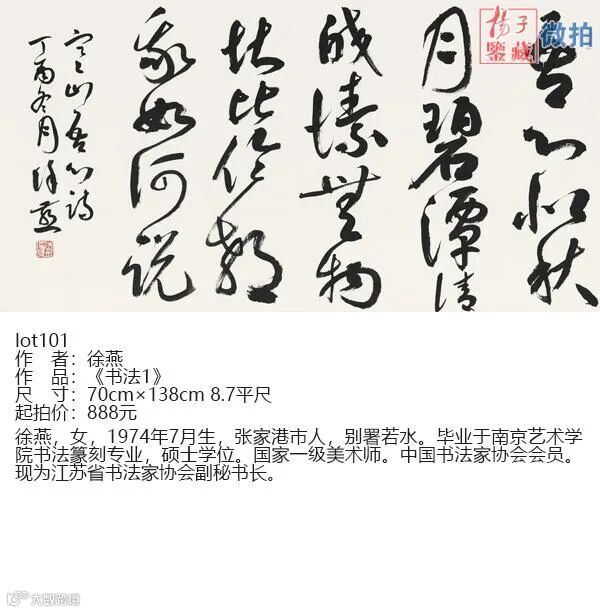 吾心似秋
月碧潭清
皎潔無物
堪比倫教
我如何説
寒山吾心詩
丁酉冬月徐燕
揚子
鑒藏
微拍
lot101
作 者：徐燕
作 品：《书法1》
尺 寸：70cm×138cm 8.7平尺
起拍价：888元
徐燕，女，1974年7月生，张家港市人，别署若水。毕业于南京艺术学
院书法篆刻专业，硕士学位。国家一级美术师。中国书法家协会会员。
现为江苏省书法家协会副秘书长。
大数跨境